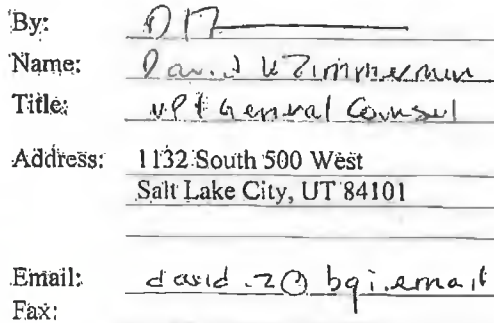 By:
Name: David W Zimmerman
Title: VP & General Counsel
Address: 1132 South 500 West
Salt Lake City, UT 84101
Email: david.z@bqi.email
Fax: